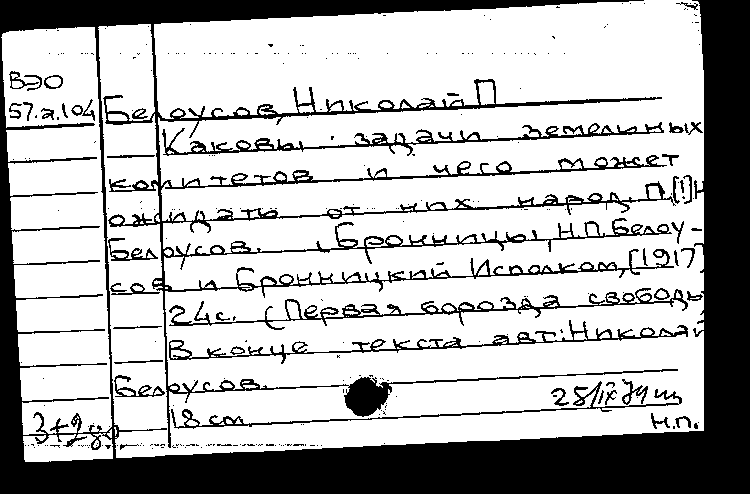 ВЭО
57.а.104 Белоусов, Николай П
Каковы задачи земельных
комитетов и чего может
ожидать от них народ. П.[!]Н
Белоусов. Бронницы, Н.П. Белоу-
сов и Бронницкий Исполком, [1917]
24с. (Первая борозда свободы
В конце текста авт: Николай
Белоусов.
18 cm.
Н.П.